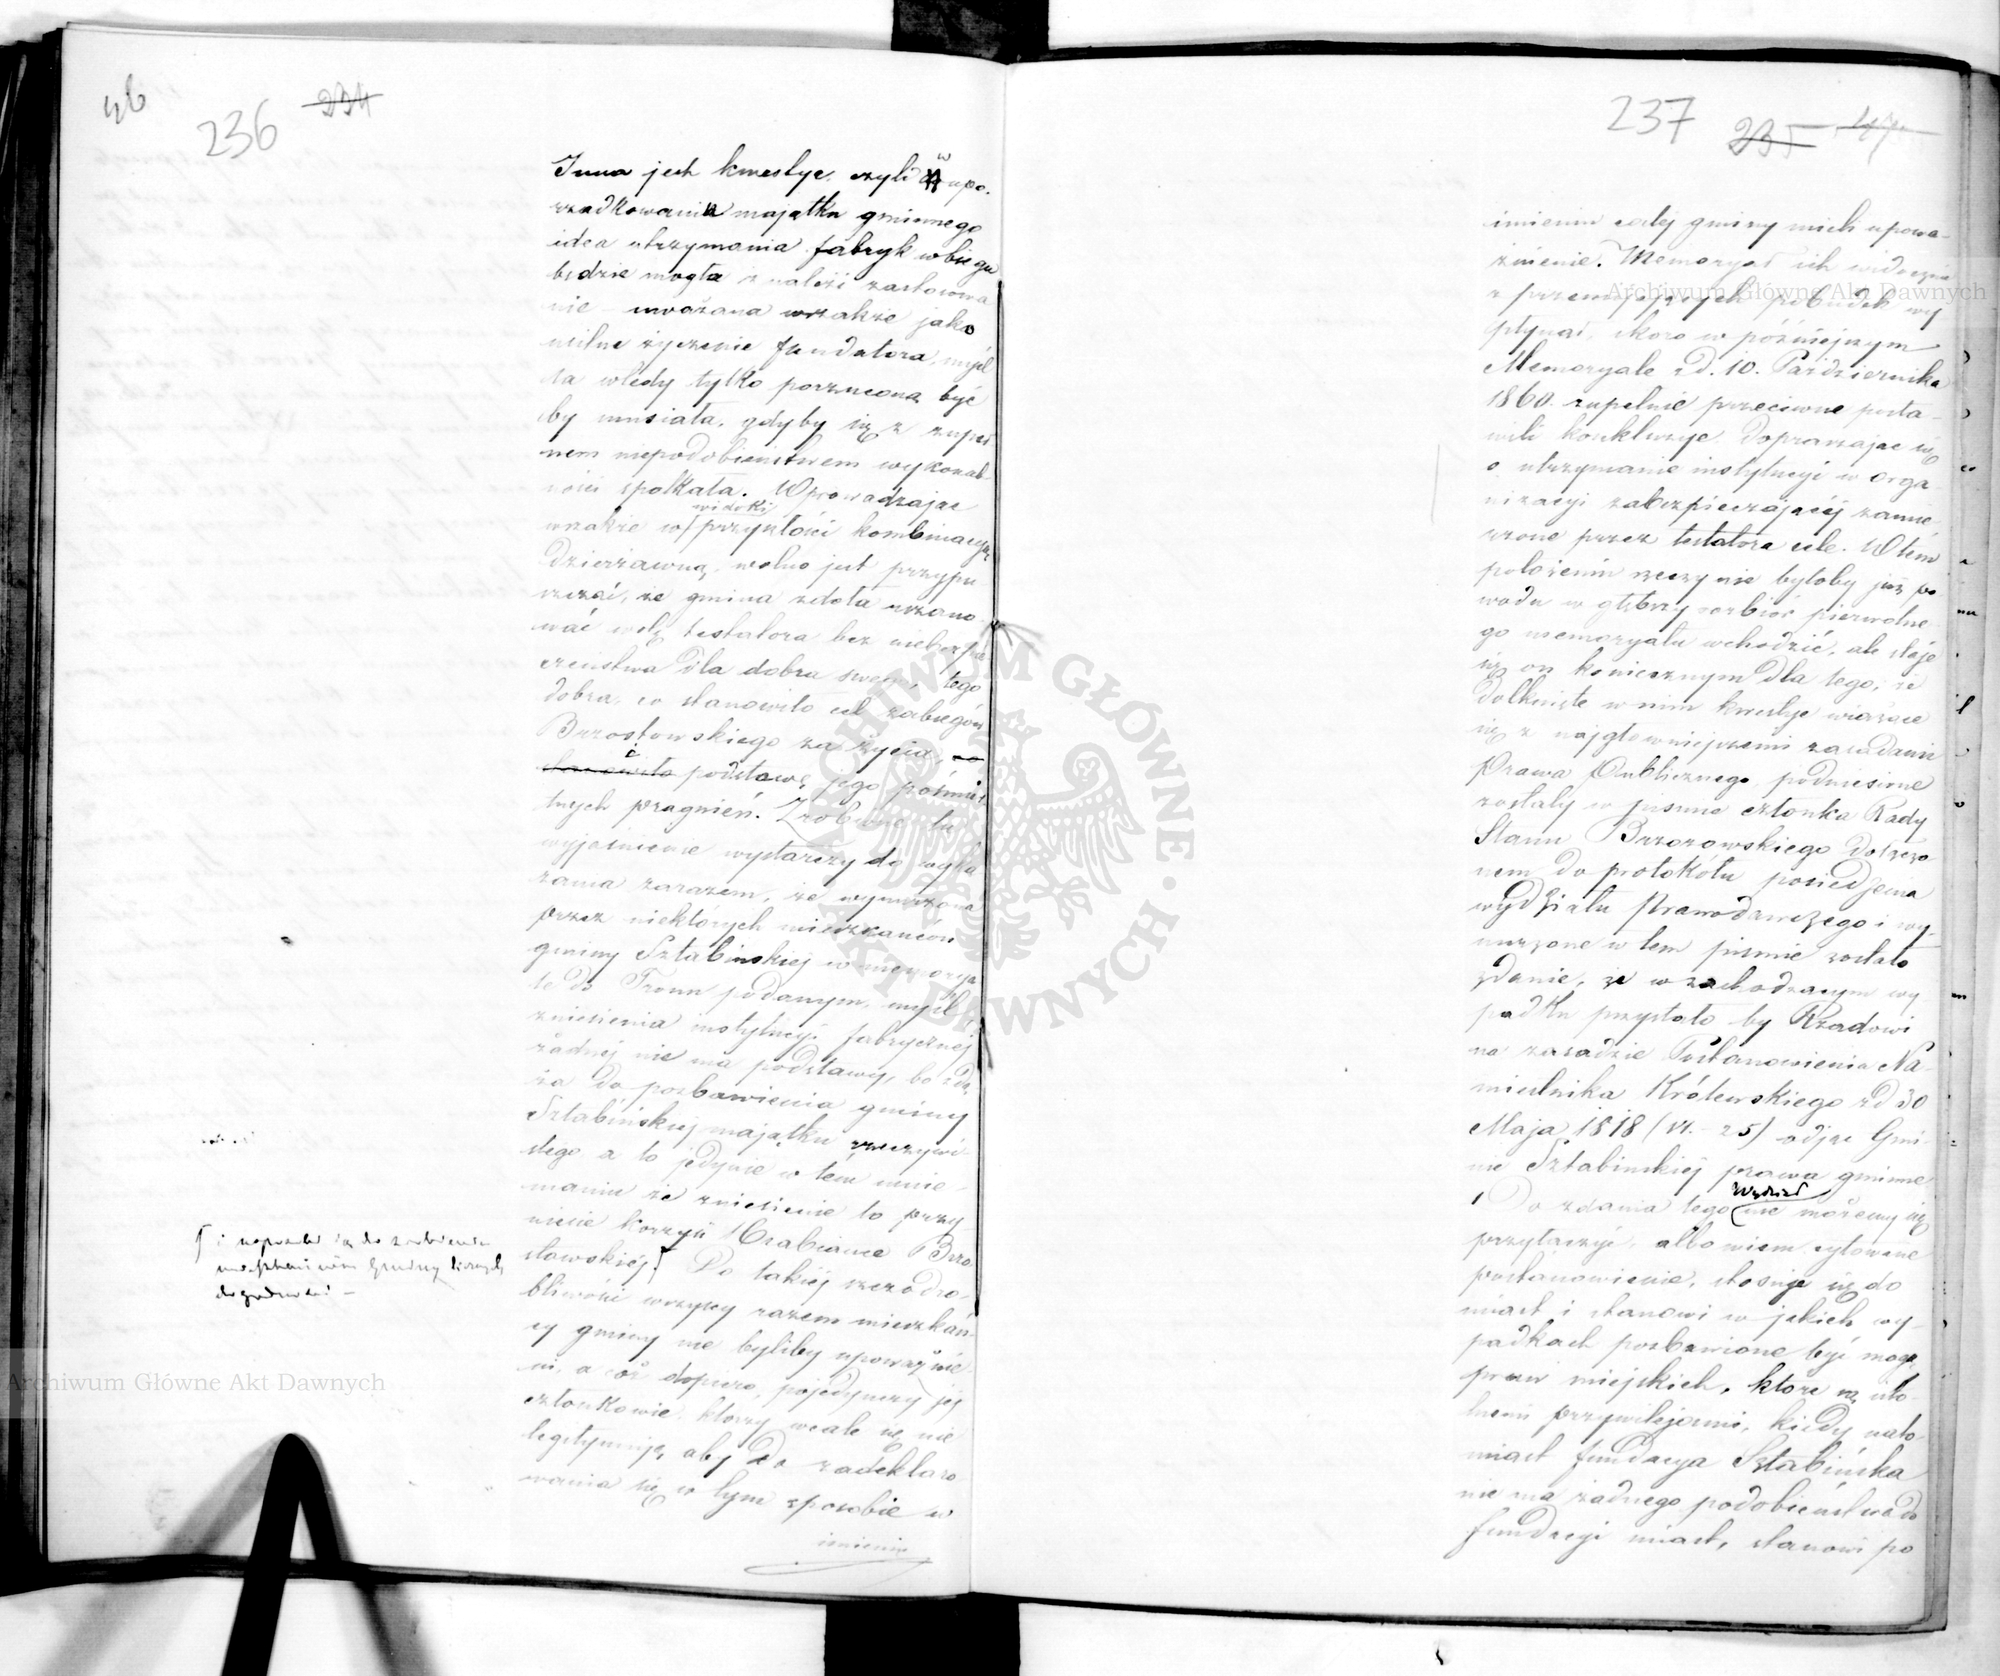 46
236 234
Inna jest kwestye, czyli w upo-
rządkowaniu majątku gminnego
idea utrzymania fabryk w biegu
będzie mogła znaleźć zastosowa
nie – uważana wszakże jako
usilne życzenie fundatora, myśl
ta wtedy tylko porzucona być
by musiała, gdyby się z zupeł
nem niepodobieństwem wykonal-
ności spotkała. Wprowadzając
wszakże w widoki przyszłości kombinacyę
dzierżawną, wolno jest przypu
szczać, że gmina zdoła uszano
wać wolę testatora bez niebezpie
czeństwa dla dobra swego, tego
dobra, co stanowiło cel zabiegów
Brzostowskiego za życia, co
stanowiło i podstawę jego pośmier
tnych pragnień. Zrobione tu
wyjaśnienie wystarczy do wyka
zania zarazem, że wyrażona
przez niektórych mieszkańców
gminy Sztabińskiej w memorya
le do Tronu podanym, myśl
zniesienia instytucyi fabrycznej
żadnej nie ma podstawy, bo zdą
ża do pozbawienia gminy
Sztabińskiej majątku rzeczywi
stego a to jedynie w tém mnie-
maniu że zniesienie to przy
niesie korzyść Hrabiance Brzo
stowskiéj. Do takiéj szczodro-
bliwości wszyscy razem mieszkań-
cy gminy nie byliby upoważnie-
ni, a cóż dopiero, pojedynczy jej
członkowie, którzy wcale się nie
legitymują, aby do zadeklaro-
wania się w tym sposobie w
imieniu
237 235 47
imieniu całej gminy mieli upowa-
żnienie. Memoryał ich widocznie
z przemijających pobudek wy
płynął, skoro w późniejszym
Memoryale z d. 10. Października
1860. zupełnie przeciwne posta-
wili konkluzye dopraszając się
o utrzymanie instytucyi w orga
nizacyi zabezpieczającéj zamie-
rzone przez testatora cele. W tém
położeniu rzeczy nie byłoby już po
wodu w głębszy rozbiór pierwotne
go memoryału wchodzić, ale staje
się on koniecznym dla tego, że
dotknięte w nim kwestye wiążące
się z najgłówniejszemi zasadami
Prawa Publicznego, podniesione
zostały w pismie członka Rady
Stanu Brzozowskiego dołączo-
nem do protokółu posiedzenia
wydziału Prawodawczego i wy-
nurzone w tem pismie zostało
zdanie, że w zachodzącym wy
padku przystało by Rządowi
na zasadzie Postanowienia Na-
miestnika Królewskiego z d 30
Maja 1818 (VI. – 25) odjąć Gmi-
nie Sztabinskiéj prawa gminne
Do zdania tego Wydział nie możemy się
przyłączyć albowiem cytowane
postanowienie, stosuje się do
miast i stanowi w jakich wy-
padkach pozbawione być mogą
praw miejskich, które są isto-
tnemi przywilejami, kiedy nato-
miast fundacya Sztabińska
nie ma żadnego podobieństwa do
fundacyi miast, stanowi po
Archiwum Główne Akt Dawnych
ARCHIWUM GŁÓWNE AKT DAWNYCH
Archiwum Główne Akt Dawnych